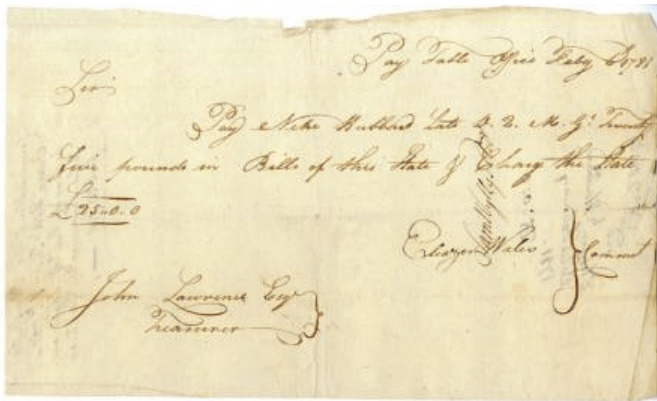 Pay Table Office Feby 6 1781
Sir
Pay Nehe Hubbard late D. Q. M. Gl Twenty
five pounds in Bills of this State & Charge the State
£25..0..0
Eleazer Wales } Commtt
John Lawrence Esqr }
Treasurer